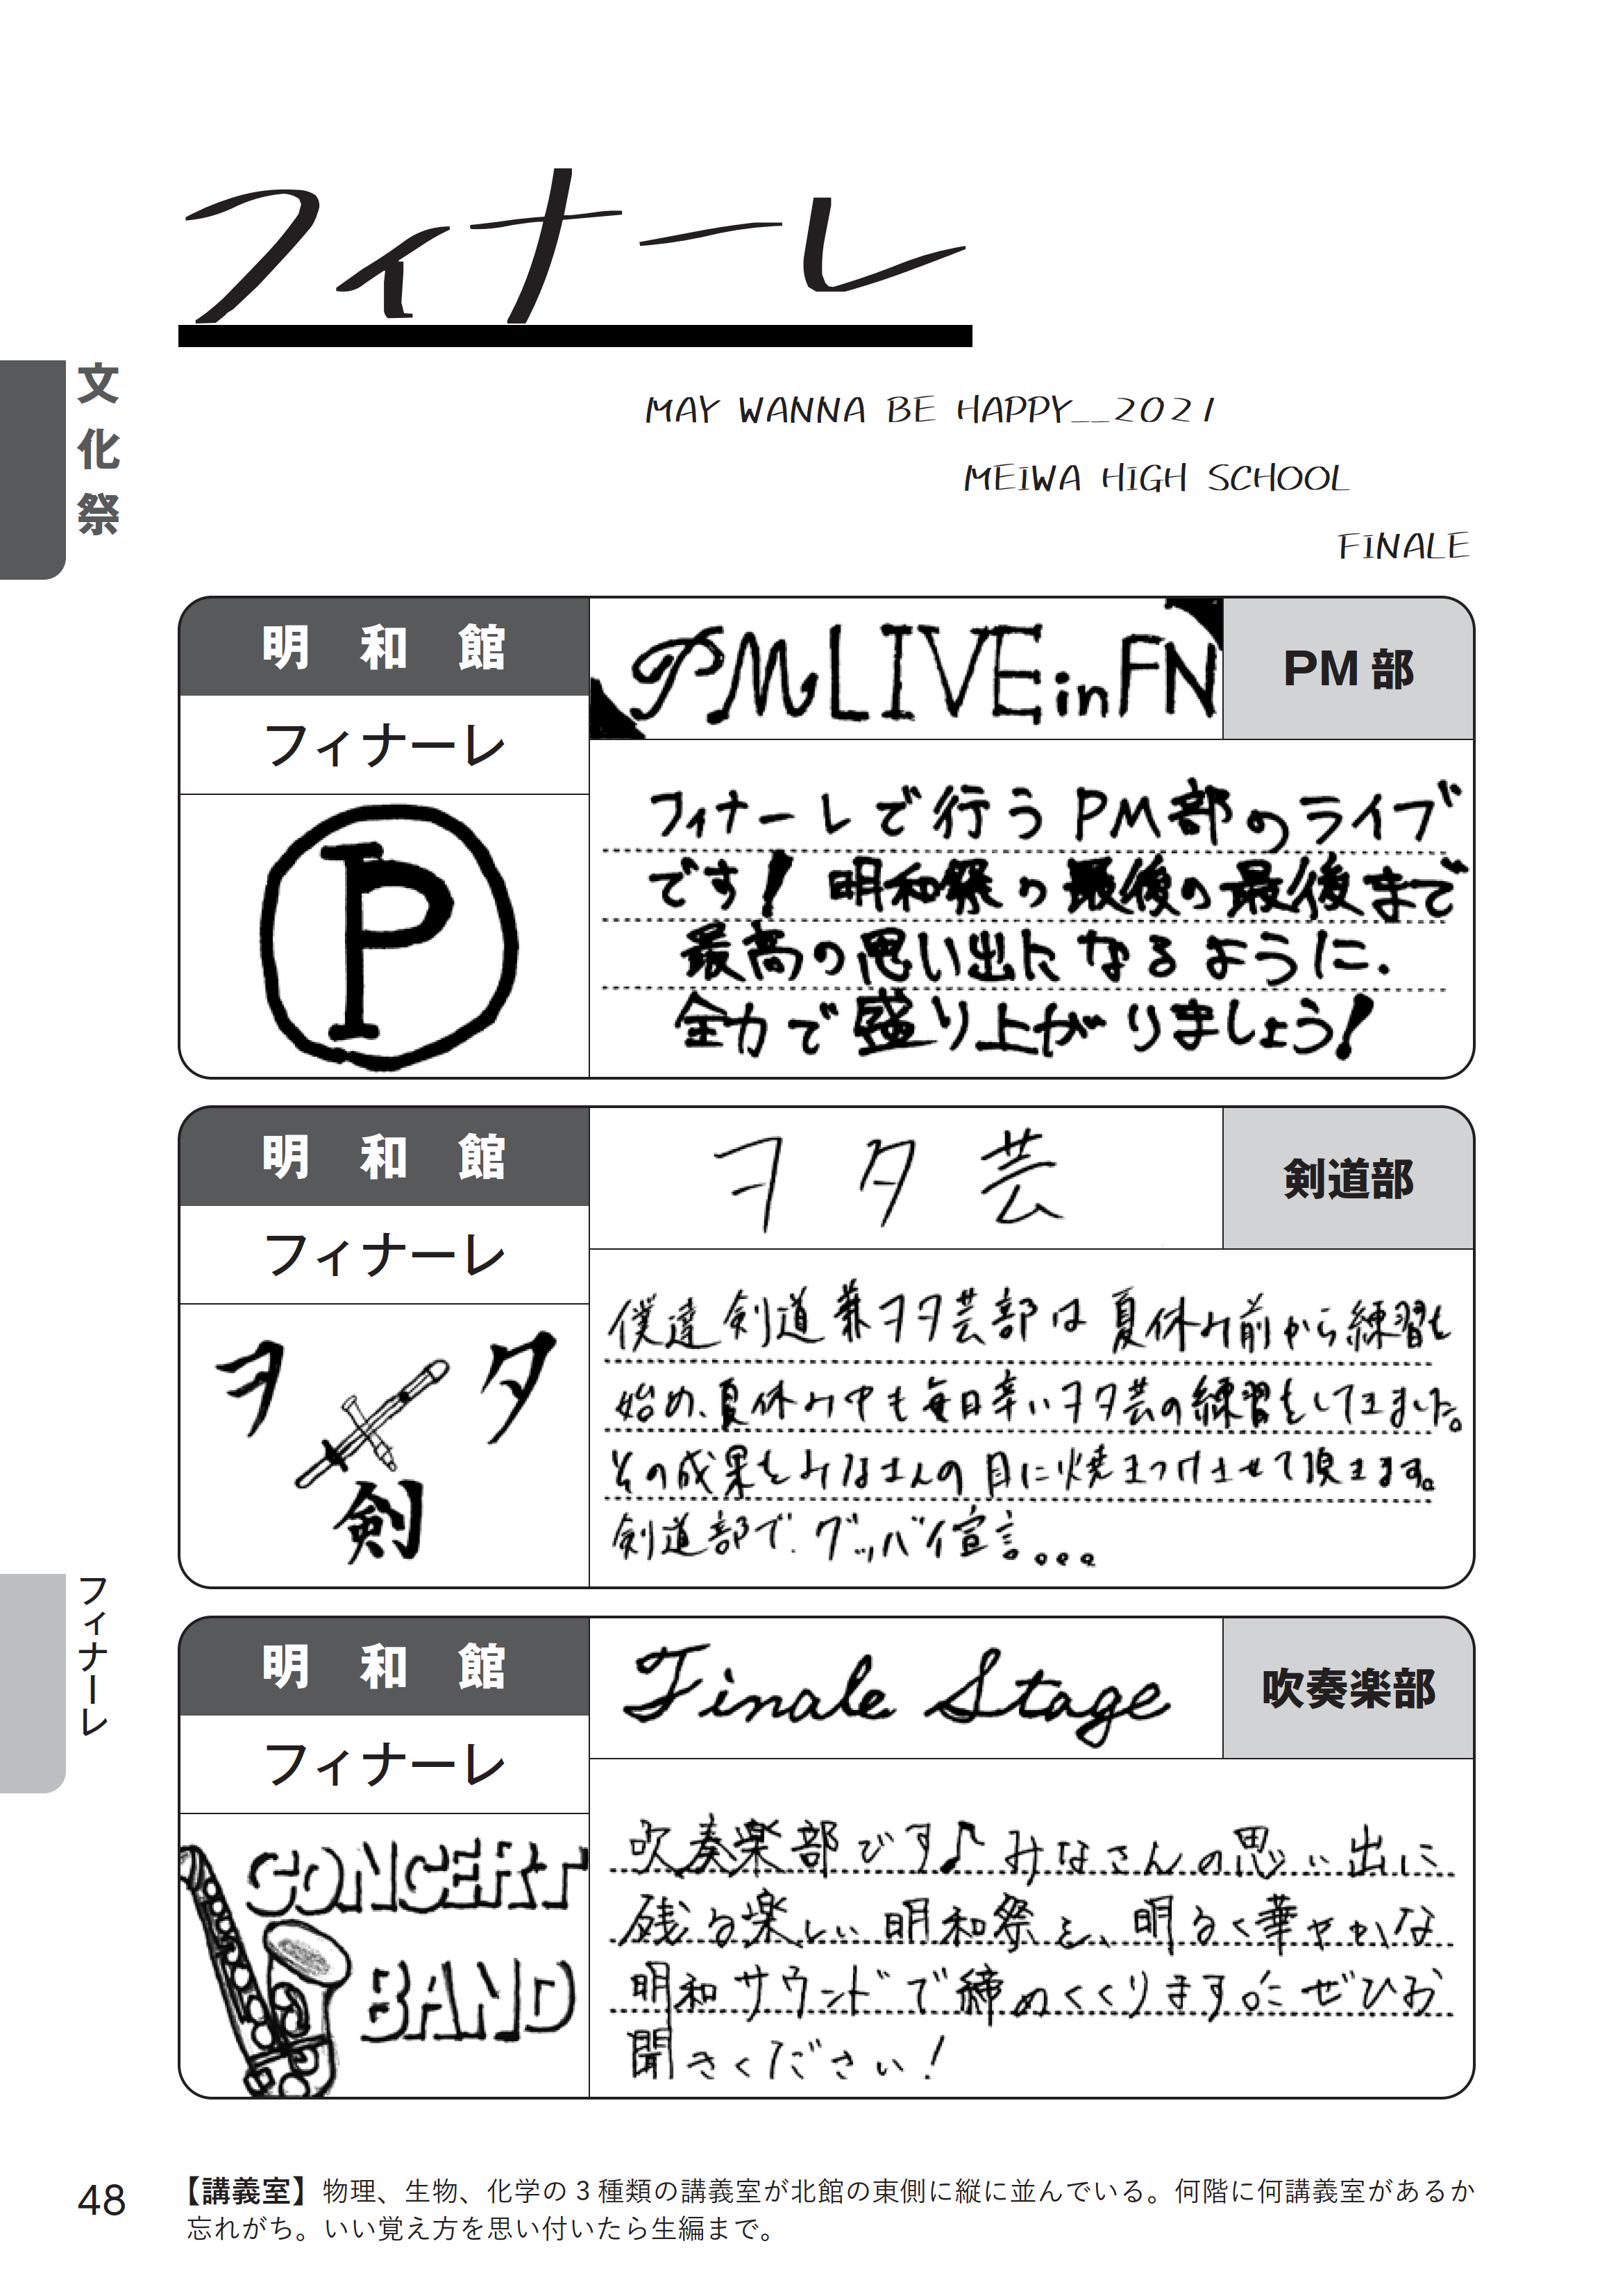 フィナーレ
MAY WANNA BE HAPPY__2021
MEIWA HIGH SCHOOL
FINALE
文化祭
明和館
フィナーレ
P
PM LIVE in FN
PM部
フィナーレで行うPM部のライブ
です！明和祭の最後の最後まで
最高の思い出になるように、
全力で盛り上がりましょう！
明和館
フィナーレ
ヲタ
剣
ヲタ芸
剣道部
僕達剣道兼ヲタ芸部は夏休み前から練習を
始め、夏休み中も毎日辛いヲタ芸の練習をしてきました。
その成果をみなさんの目に焼きつけさせて頂きます。
剣道部で、グッバイ宣言。。。。
フィナーレ
明和館
フィナーレ
CONCERT
BAND
Finale Stage
吹奏楽部
吹奏楽部です♪みなさんの思い出に
残る楽しい明和祭を、明るく華やかな
明和サウンドで締めくくります。ぜひお
聞きください！
48
【講義室】物理、生物、化学の3種類の講義室が北館の東側に縦に並んでいる。何階に何講義室があるか
忘れがち。いい覚え方を思い付いたら生編まで。